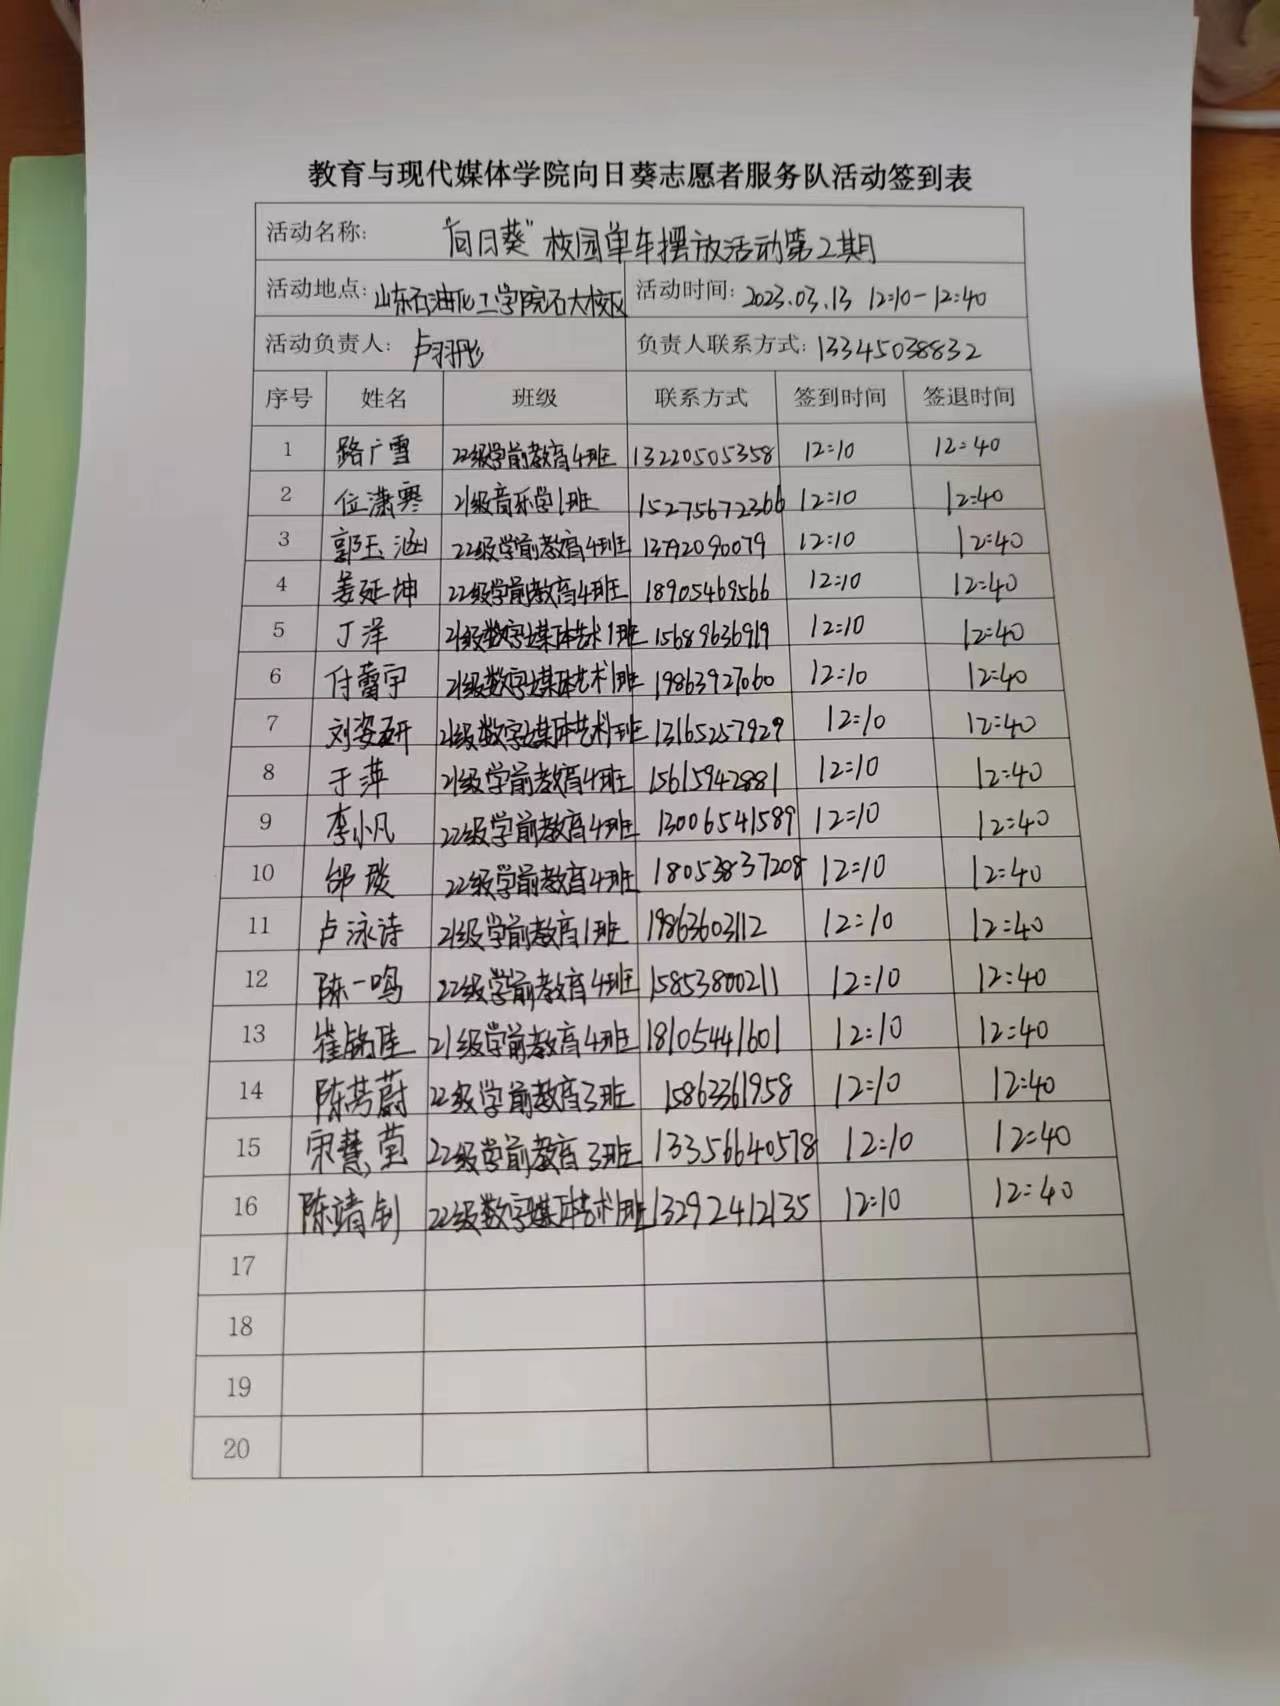 教育与现代媒体学院向日葵志愿者服务队活动签到表
活动名称: "向日葵"校园单车摆放活动第2期
活动地点: 山东石油化工学院石大校区 活动时间: 2023.03.13 12:10-12:40
活动负责人: 卢羽彤 负责人联系方式: 13345038832
序号 姓名 班级 联系方式 签到时间 签退时间
1 路广雪 22级学前教育4班 13220505358 12:10 12:40
2 位潇寒 21级音乐学1班 15275672366 12:10 12:40
3 郭玉涵 22级学前教育4班 13792090079 12:10 12:40
4 姜延坤 22级学前教育4班 18905469566 12:10 12:40
5 丁洋 21级数字媒体艺术1班 15689636919 12:10 12:40
6 付蕾宇 21级数字媒体艺术1班 19863927060 12:10 12:40
7 刘姿研 21级数字媒体艺术1班 13165257929 12:10 12:40
8 于萍 21级学前教育4班 15615942881 12:10 12:40
9 李小凡 22级学前教育4班 13006541589 12:10 12:40
10 邰琰 22级学前教育4班 18053837208 12:10 12:40
11 卢泳诗 21级学前教育1班 19863603112 12:10 12:40
12 陈一鸣 22级学前教育4班 15853800211 12:10 12:40
13 崔铭佳 21级学前教育4班 18105441601 12:10 12:40
14 陈芳蔚 22级学前教育3班 15863361958 12:10 12:40
15 宋慧莹 22级学前教育3班 13356640578 12:10 12:40
16 陈靖钊 22级数字媒体艺术1班 13292412135 12:10 12:40
17
18
19
20